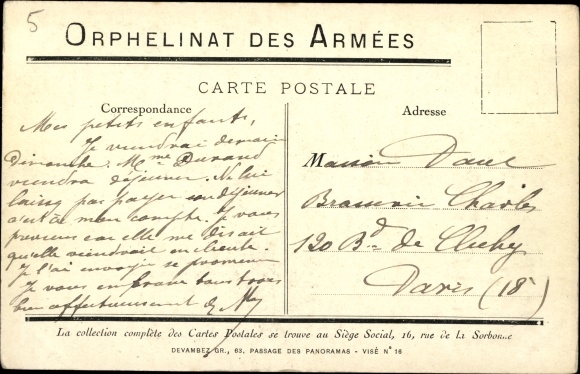 5
ORPHELINAT DES ARMÉES
CARTE POSTALE
Correspondance
Adresse
Mes petits enfants,
Je viendrai demain
Dimanche. Mme Durand
viendra déjeuner. Ne lui
laissez pas payer son déjeuner
c'est à mon compte. Je vous
préviens car elle me disait
qu'elle viendrait en cliente.
Je l'ai envoyé se promener
Je vous embrasse tous trois
bien affectueusement
Maison
Brasserie Charles
120 Bd de Clichy
Paris (18)
La collection complète des Cartes Postales se trouve au Siège Social, 16, rue de la Sorbonne
DEVAMBEZ GR., 63, PASSAGE DES PANORAMAS - VISÉ N° 16